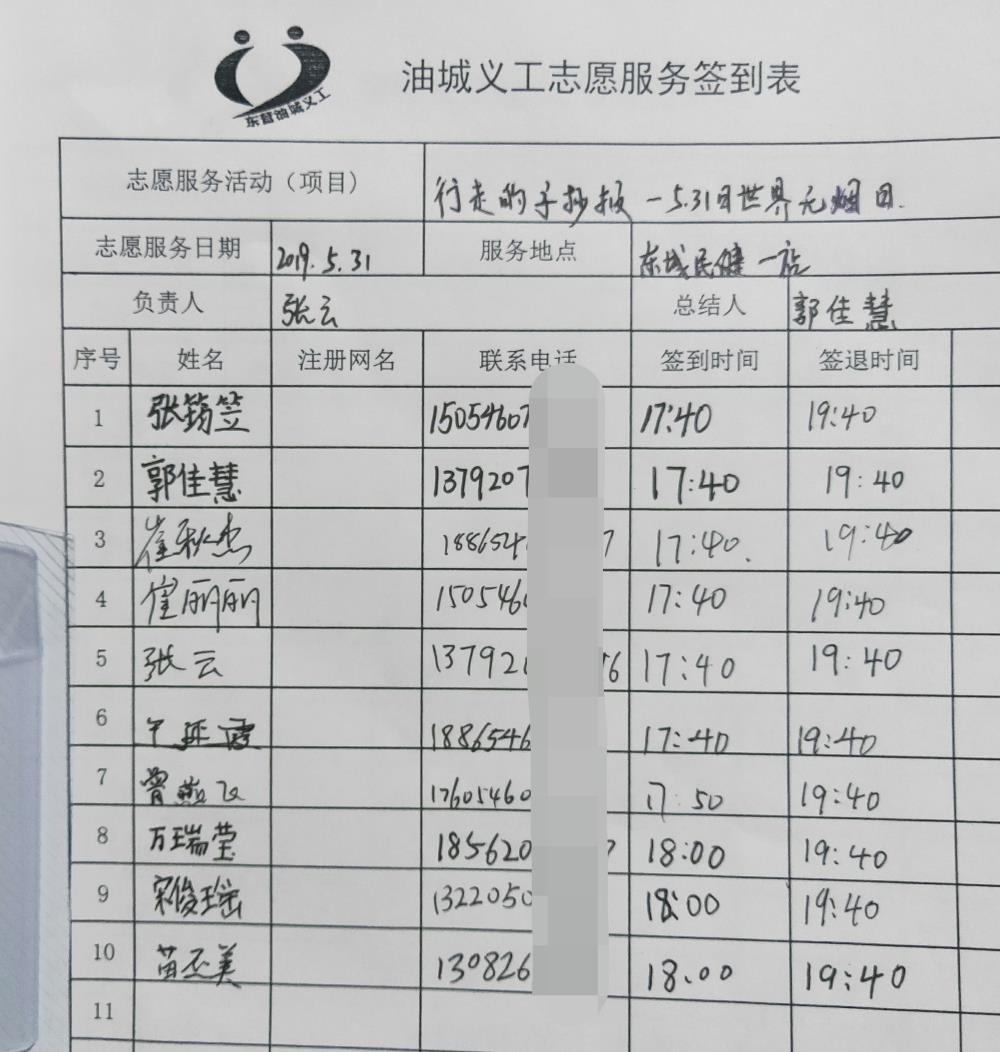 东营油城义工
油城义工志愿服务签到表
志愿服务活动（项目） 行走的手抄报 一5.31日世界无烟日.
志愿服务日期 2019.5.31 服务地点 东城民健一站
负责人 张云 总结人 郭佳慧
序号 姓名 注册网名 联系电话 签到时间 签退时间
1 张筠笠 15054607 17:40 19:40
2 郭佳慧 1379207 17:40 19:40
3 崔秋杰 1886524 7 17:40. 19:40
4 崔丽丽 1505460 17:40 19:40
5 张云 137920 6 17:40 19:40
6 1886546 17:40 19:40
7 曾燕飞 17605460 17:50 19:40
8 万瑞莹 185620 7 18:00 19:40
9 宋俊瑶 1322050 18:00 19:40
10 苗丕美 130826 18:00 19:40
11